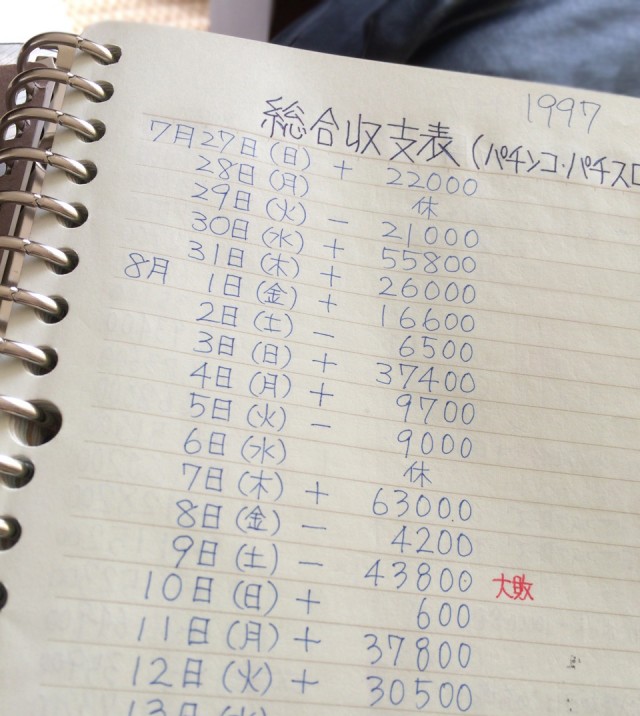 1997
総合収支表(パチンコ・パチスロ
7月27日(日) + 22000
28日(月) 休
29日(火) − 21000
30日(水) + 55800
31日(木) + 26000
8月 1日(金) + 16600
2日(土) − 6500
3日(日) + 37400
4日(月) + 9700
5日(火) − 9000
6日(水) 休
7日(木) + 63000
8日(金) − 4200
9日(土) − 43800 大敗
10日(日) + 600
11日(月) + 37800
12日(火) + 30500
13日